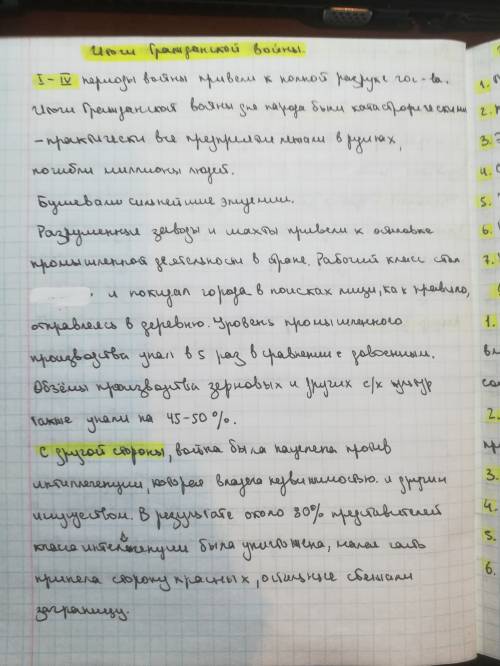 Итоги Гражданской войны.
I-IV периоды войны привели к полной разрухе гос-ва.
Итоги Гражданской войны для народа были катастрофическими
-практически все предприятия лежали в руинах,
погибли миллионы людей.
Бушевали сильнейшие эпидемии.
Разрушенные заводы и шахты привели к остановке
промышленной деятельности в стране. Рабочий класс стал
и покидал города в поисках пищи, как правило,
отправляясь в деревню. Уровень промышленного
производства упал в 5 раз в сравнении с довоенным.
Объёмы производства зерновых и других с/х культур
также упали на 45-50%.
С другой стороны, война была нацелена против
интиллегенции, которая владела недвижимостью и другим
имуществом. В результате около 80% представителей
класса интеллегенции была уничтожена, малая часть
приняла сторону красных, остальные сбежали
заграницу.
1.
2.
3.
4.
5.
6.
7.
1.
2.
3.
4.
5.
6.